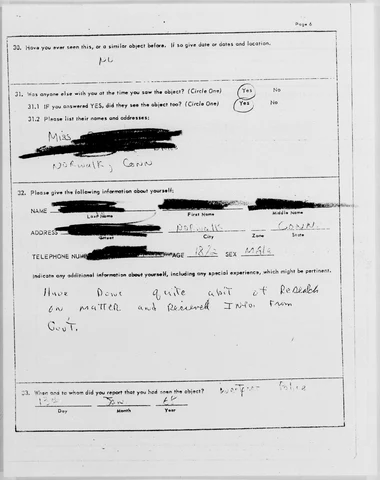 Page 6
30. Have you ever seen this, or a similar object before. If so give date or dates and location.
No
31. Was anyone else with you at the time you saw the object? (Circle One) Yes No
31.1 IF you answered YES, did they see the object too? (Circle One) Yes No
31.2 Please list their names and addresses:
Miss
NORWALK, CONN
32. Please give the following information about yourself:
NAME
Last Name First Name Middle Name
ADDRESS NORWALK CONN.
Street City Zone State
TELEPHONE NUMBER AGE 18½ SEX MALE
Indicate any additional information about yourself, including any special experience, which might be pertinent.
Have Done quite abit of Reseach
on matter and Recieved Info. From
Govt.
33. When and to whom did you report that you had seen the object? Westport Police
Jan
Day Month Year